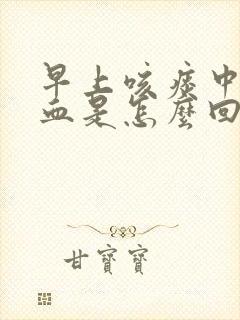 早上咳痰中
血是怎麼回
甘寶寶